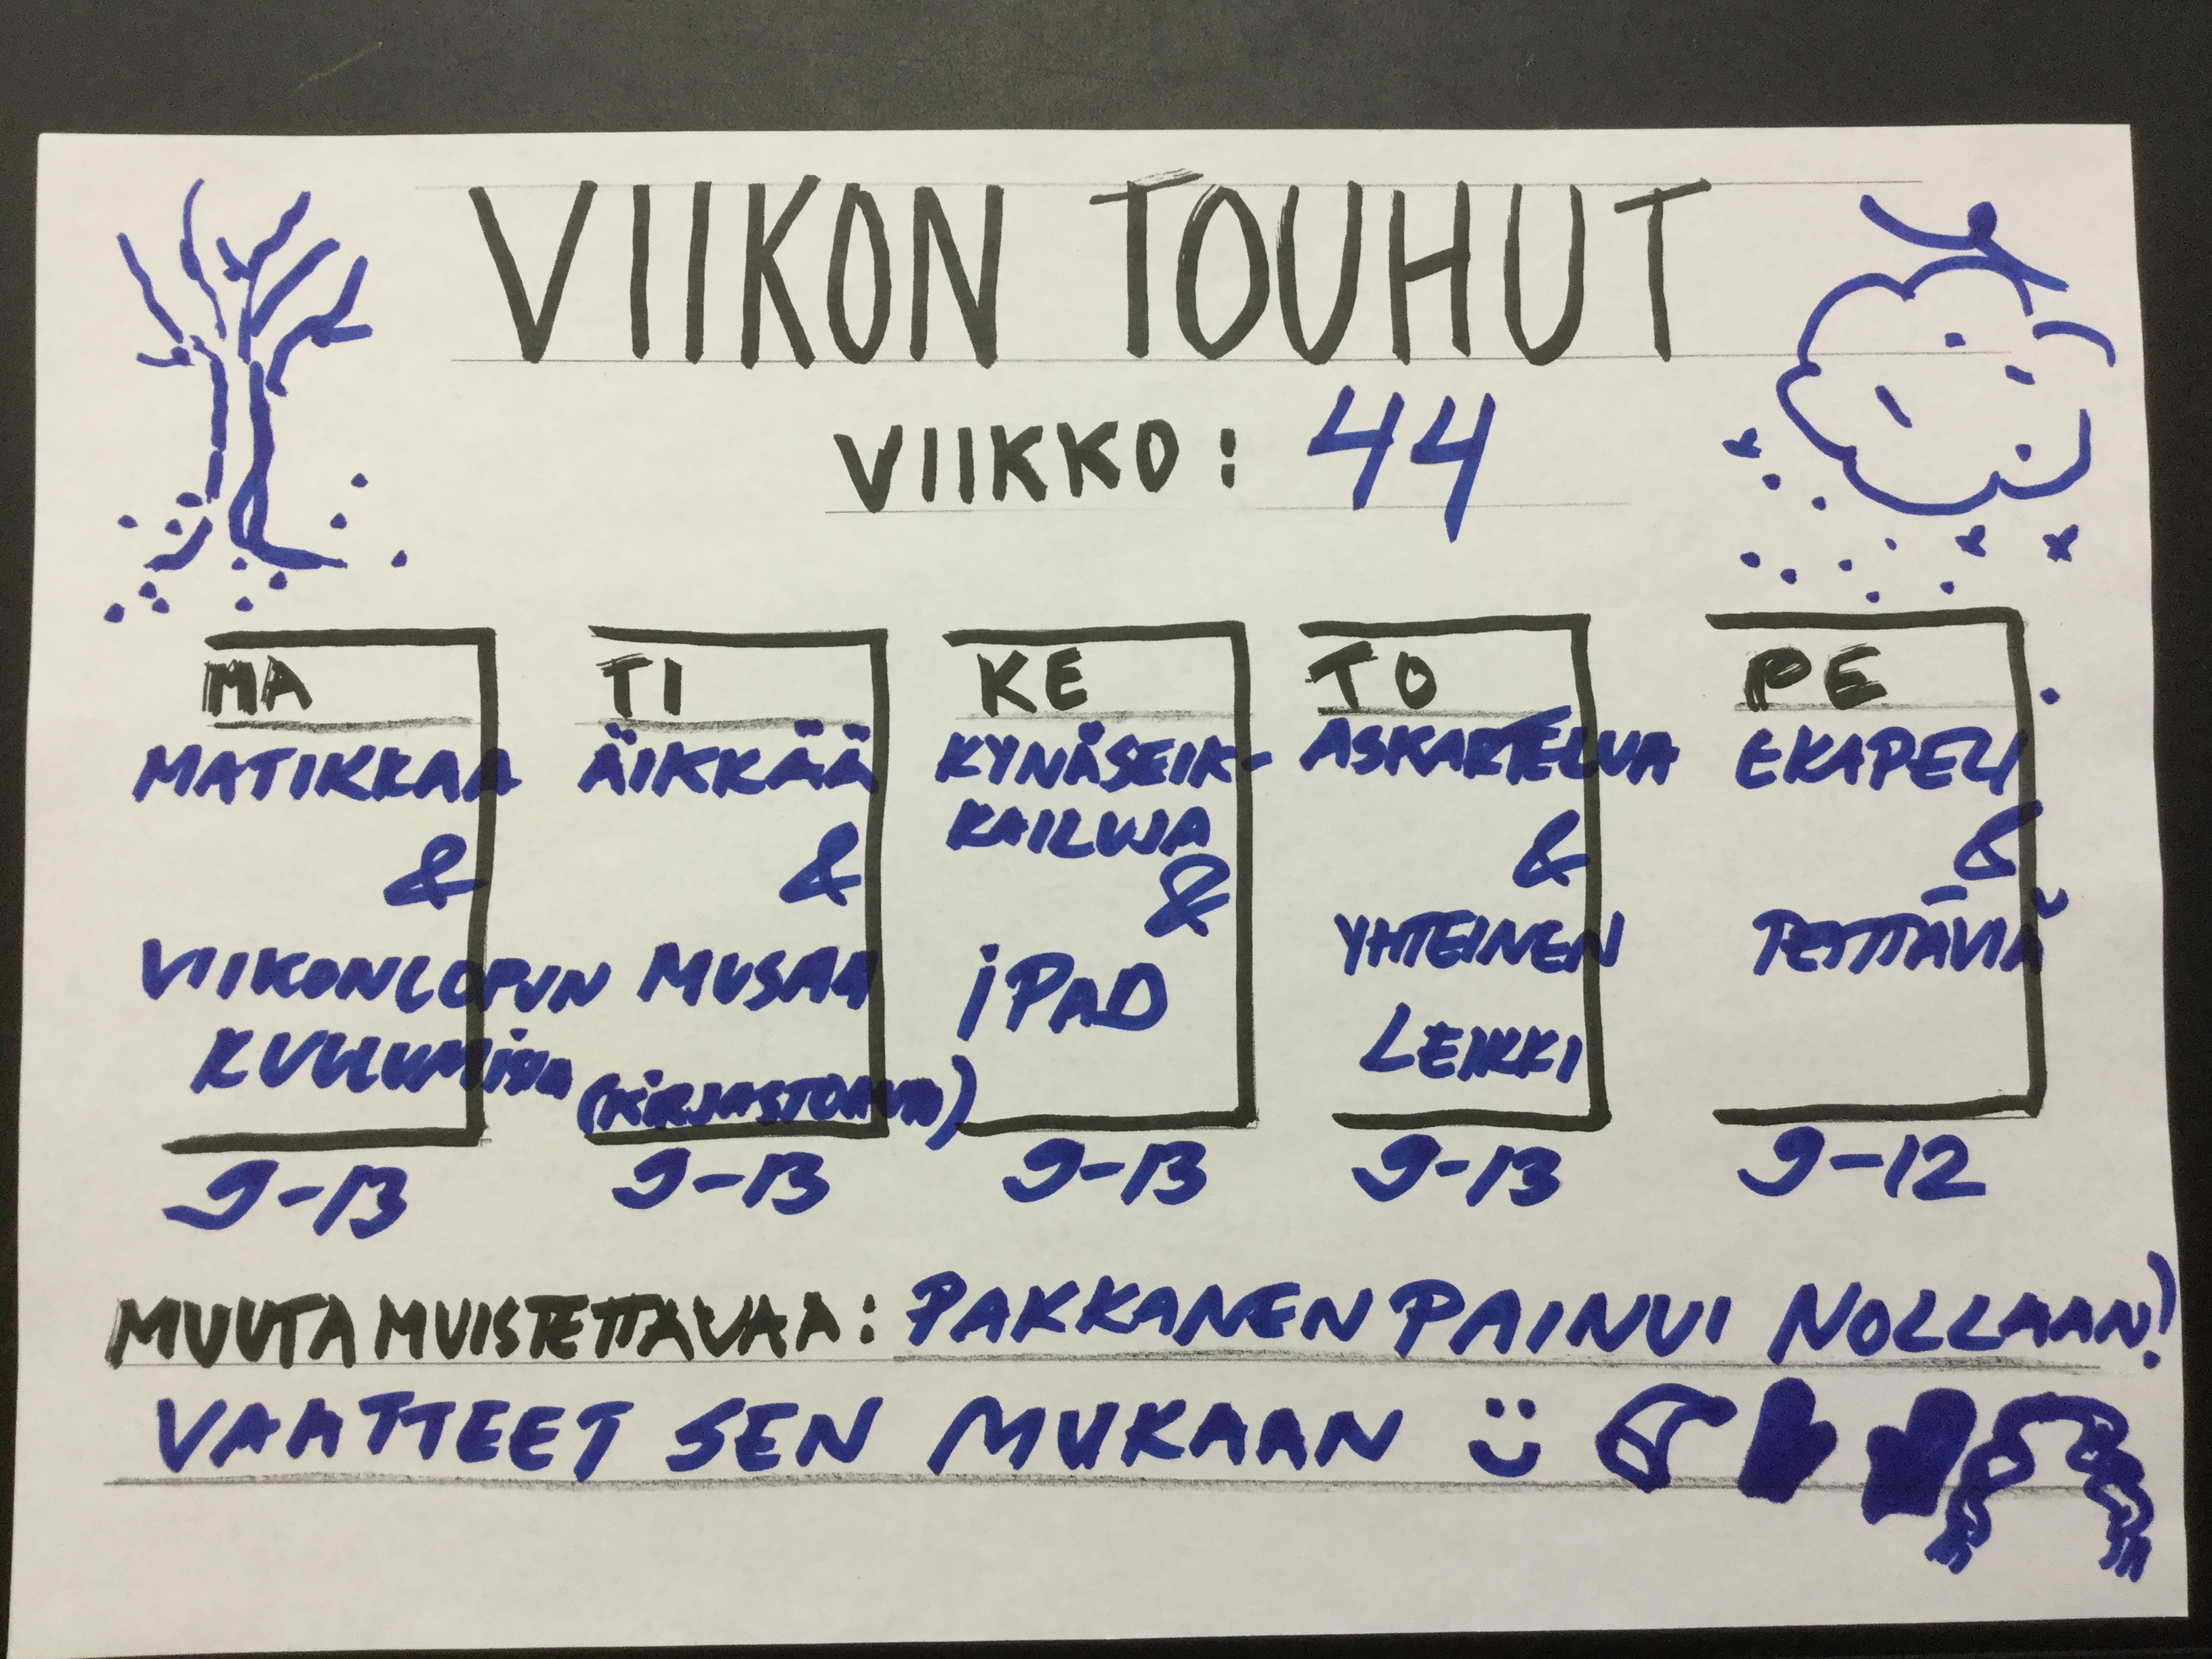 VIIKON TOUHUT
VIIKKO: 44
MA
MATIKKAA
&
VIIKONLOPUN
KUULUMISIA
9-13
TI
ÄIKKÄÄ
&
MUSAA
(KIRJASTOAUTO)
9-13
KE
KYNÄSEIK-
KAILUJA
&
iPAD
9-13
TO
ASKARTELUA
&
YHTEINEN
LEIKKI
9-13
PE
EKAPELI
&
9-12
MUUTA MUISTETTAVAA: PAKKANEN PAINUI NOLLAAN!
VAATTEET SEN MUKAAN